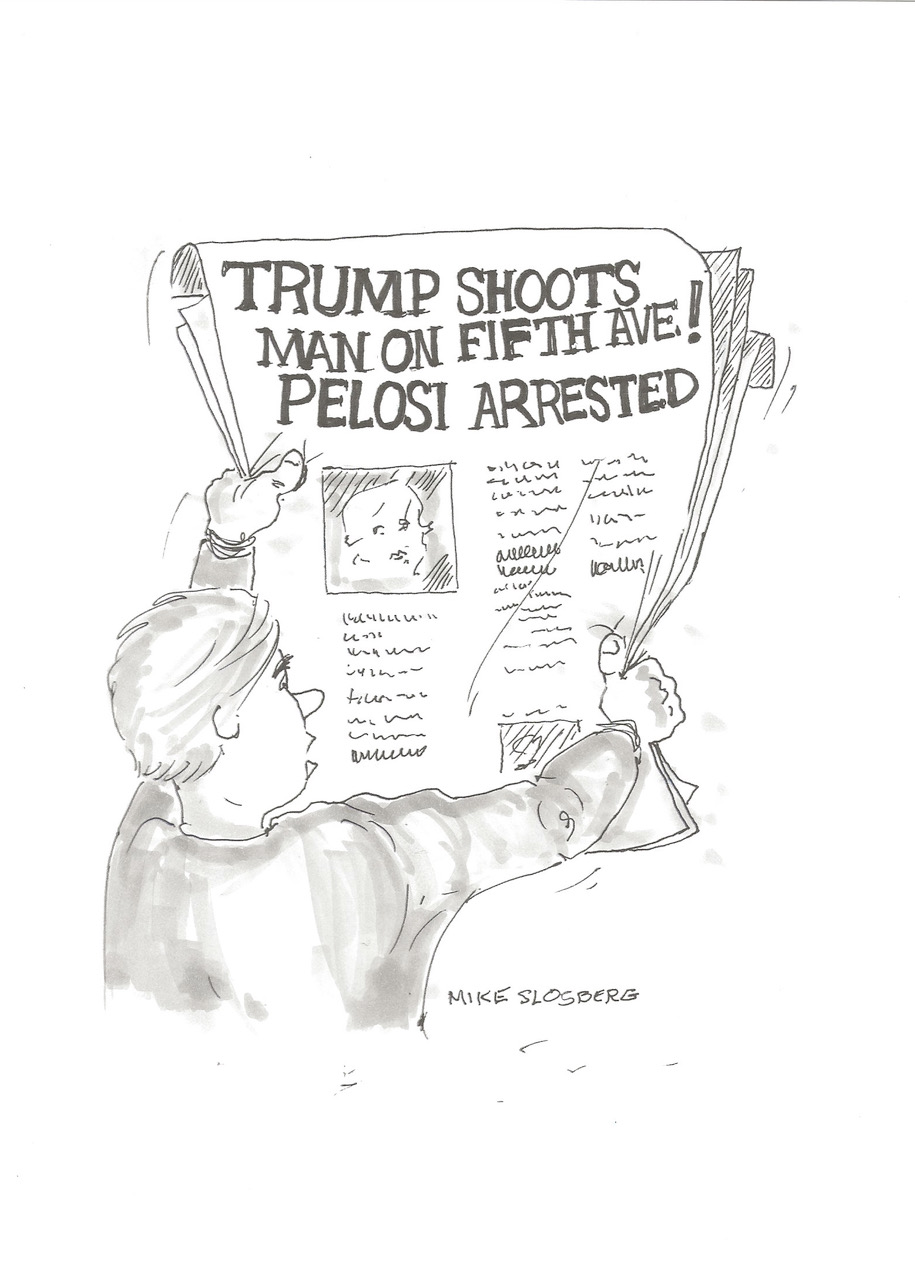 TRUMP SHOOTS
MAN ON FIFTH AVE.!
PELOSI ARRESTED
MIKE SLOSBERG